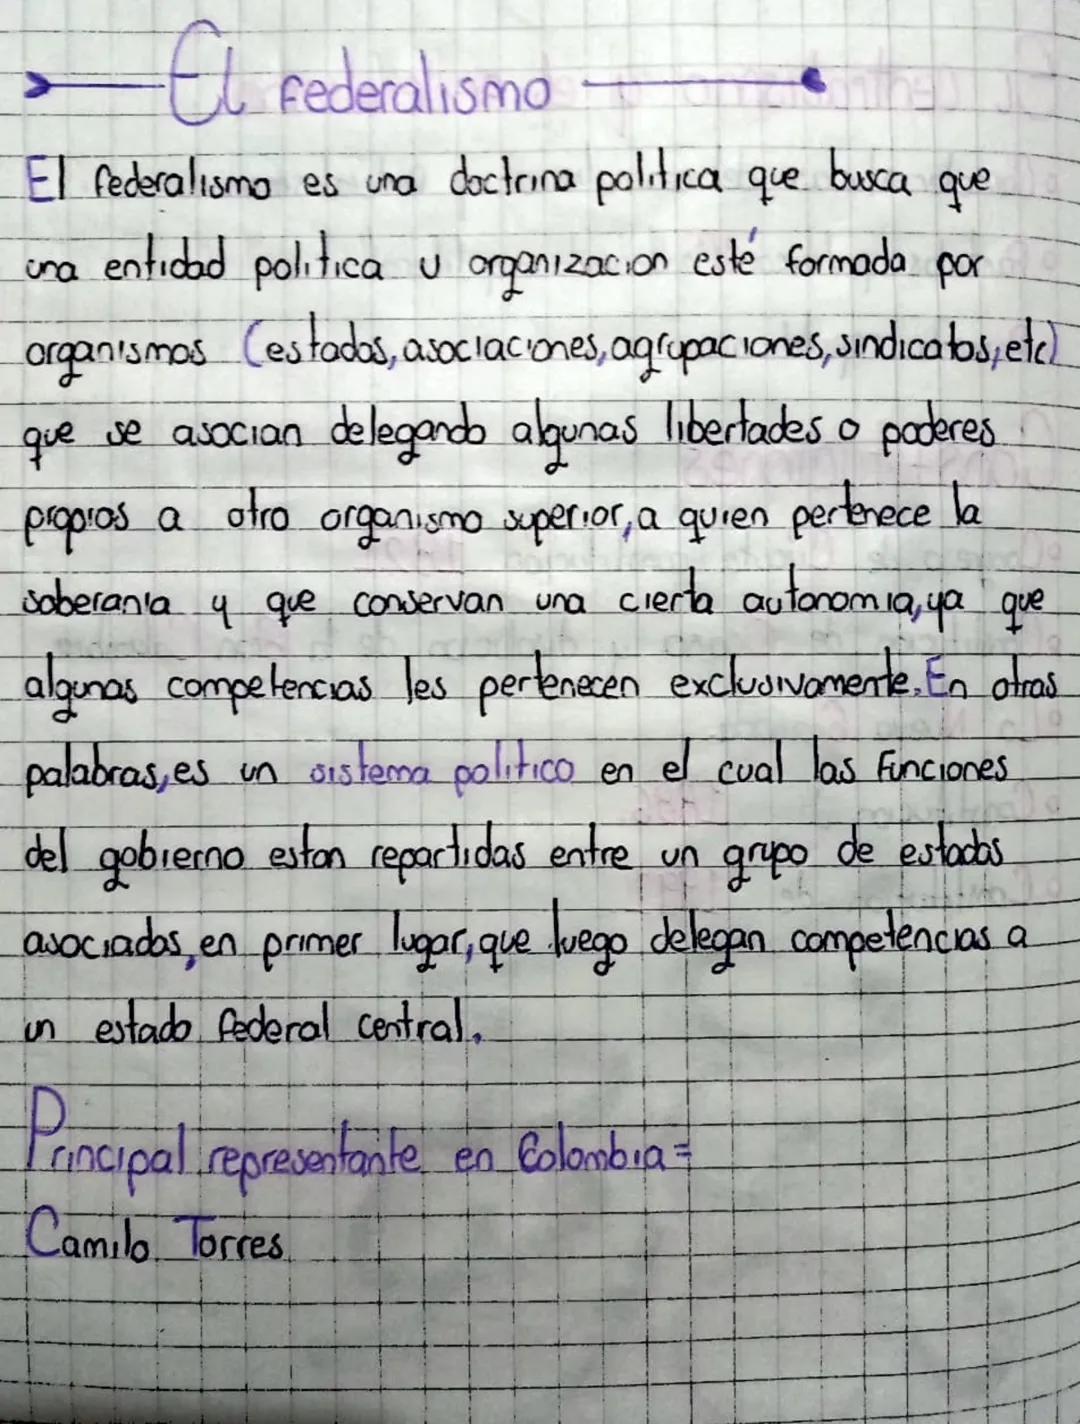 El federalismo
El federalismo es una doctrina politica que busca que
una entidad politica u organizacion esté formada por
organismos (estados, asociaciones, agrupaciones, sindicatos, etc)
que se asocian delegando algunas libertades o poderes
propios a otro organismo superior, a quien pertenece la
soberania y que conservan una cierta autonomia, ya que
algunas competencias les pertenecen exclusivamente. En otras
palabras, es un sistema politico en el cual las Funciones
del gobierno estan repartidas entre un grupo de estados
asociados, en primer lugar, que luego delegan competencias a
un estado federal central.
Principal representante en Colombia=
Camilo Torres